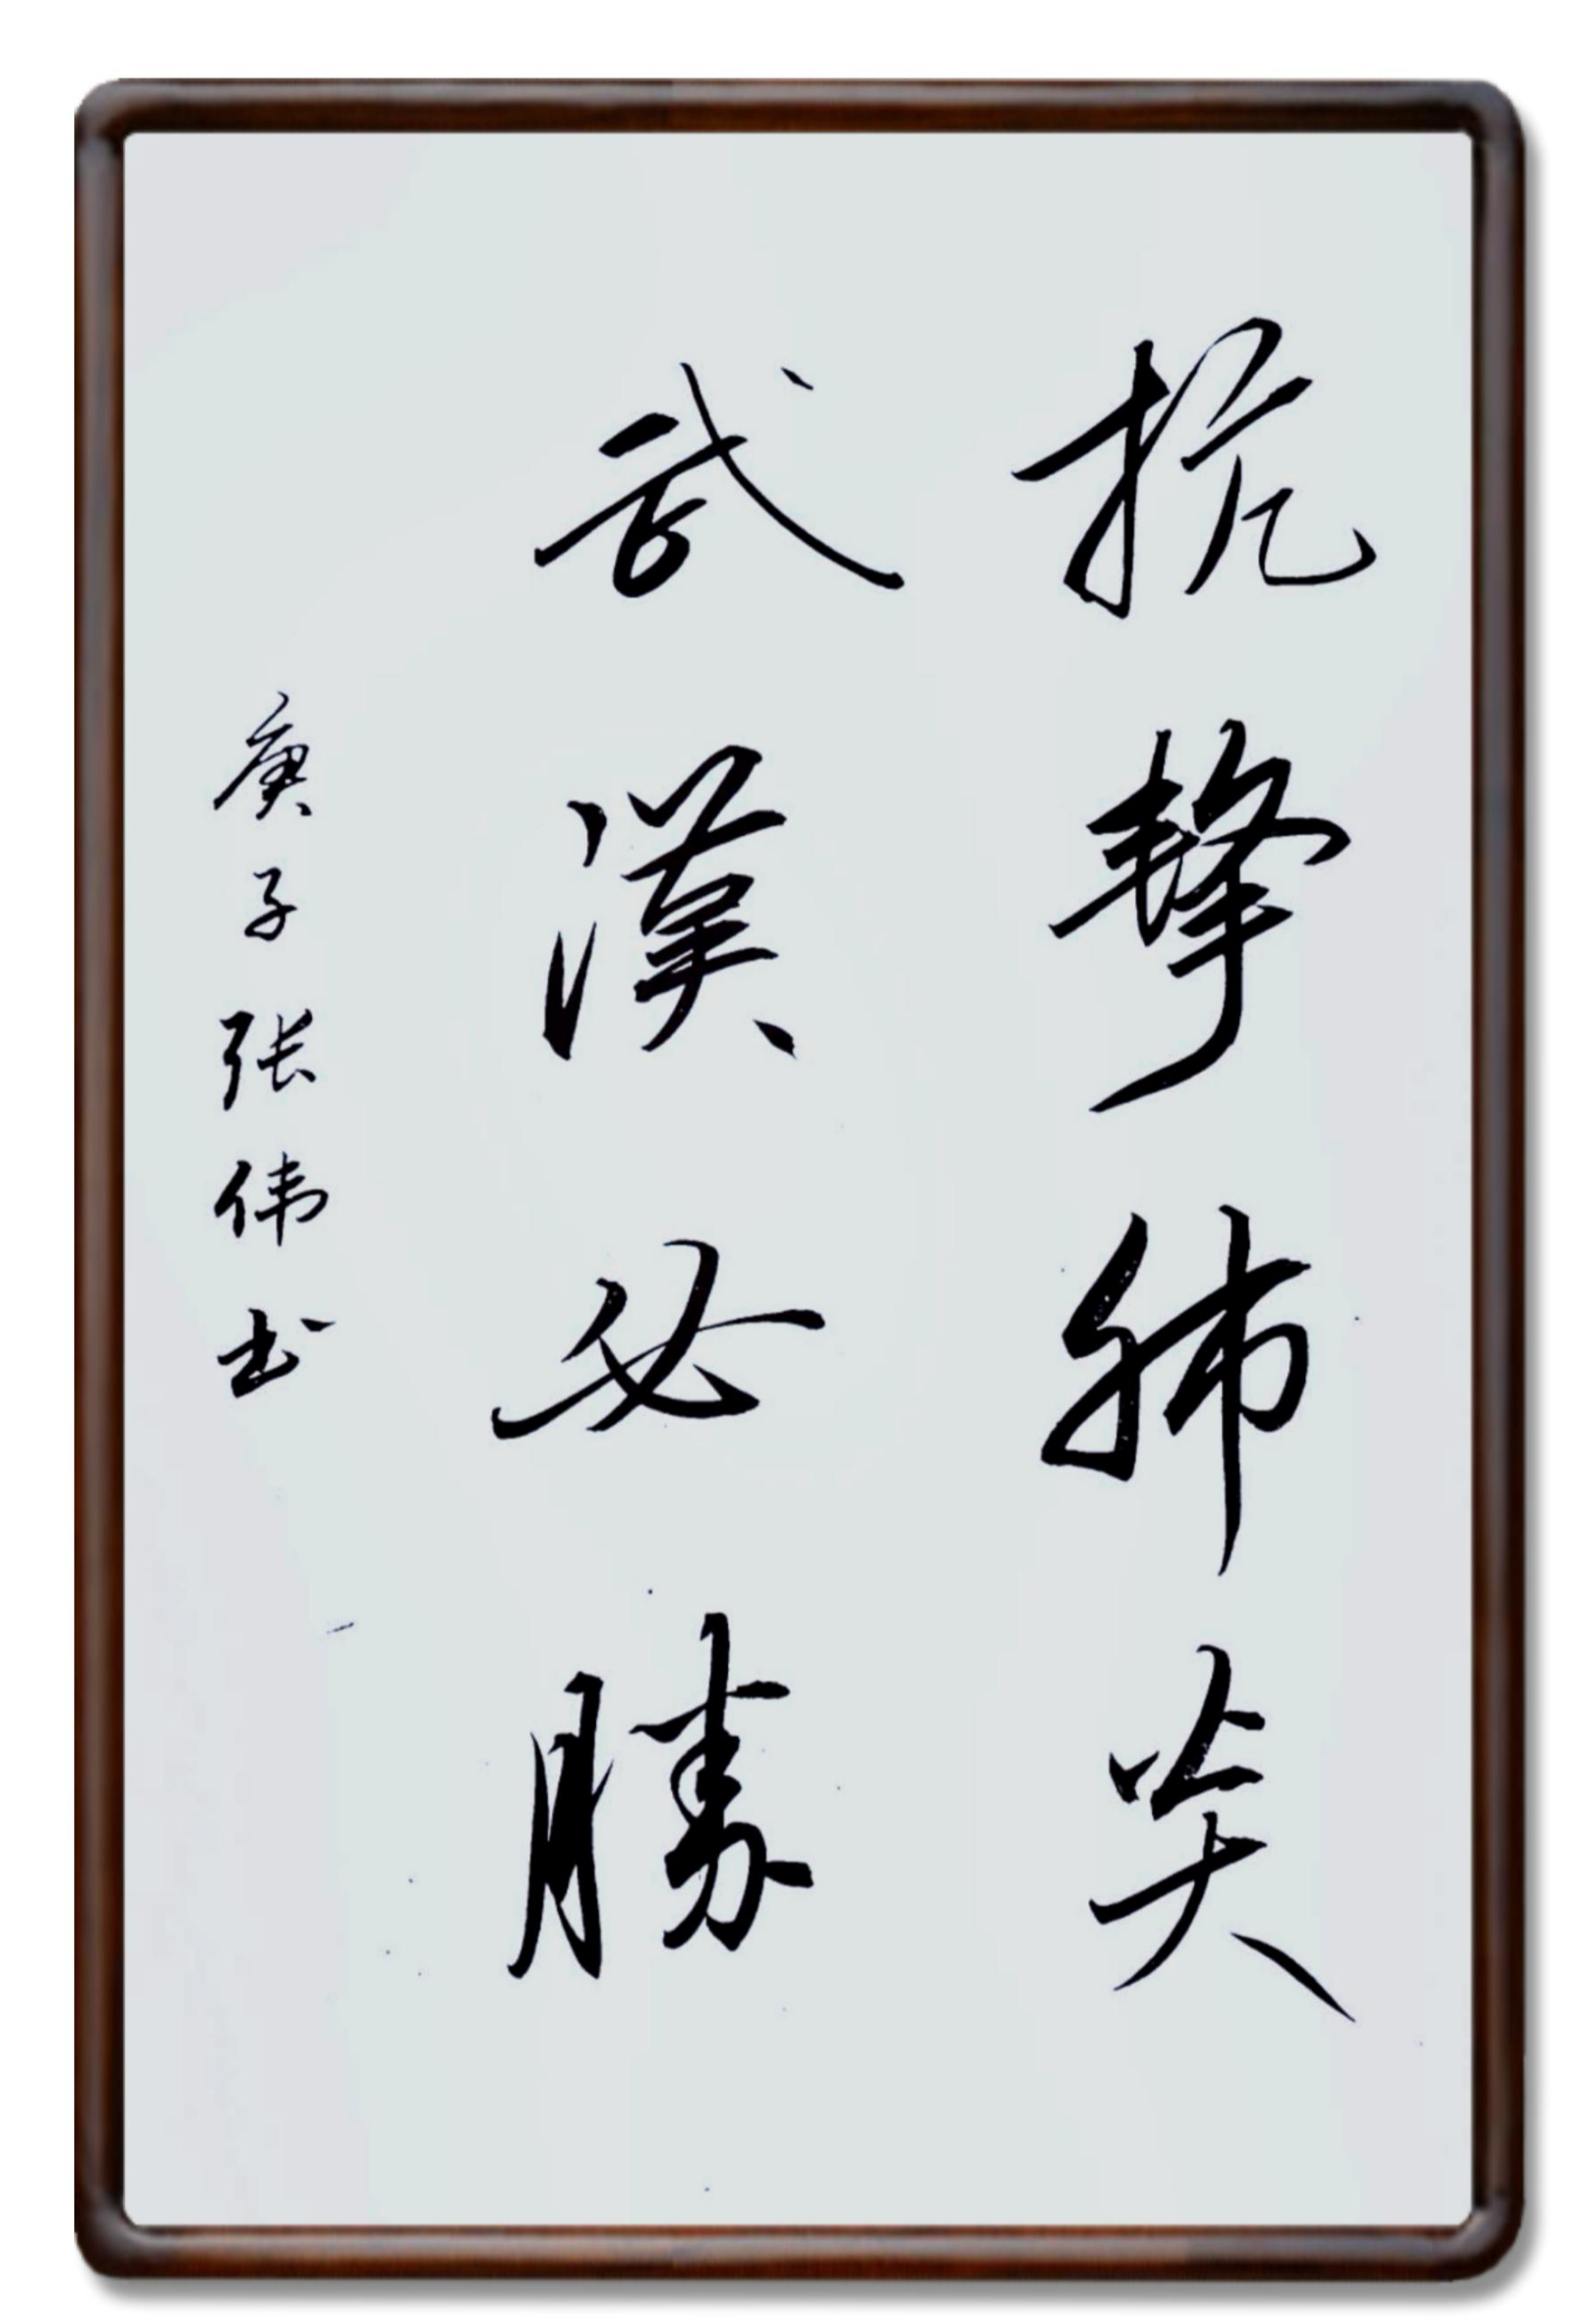 抗擊肺炎
武漢必勝
庚子张伟书